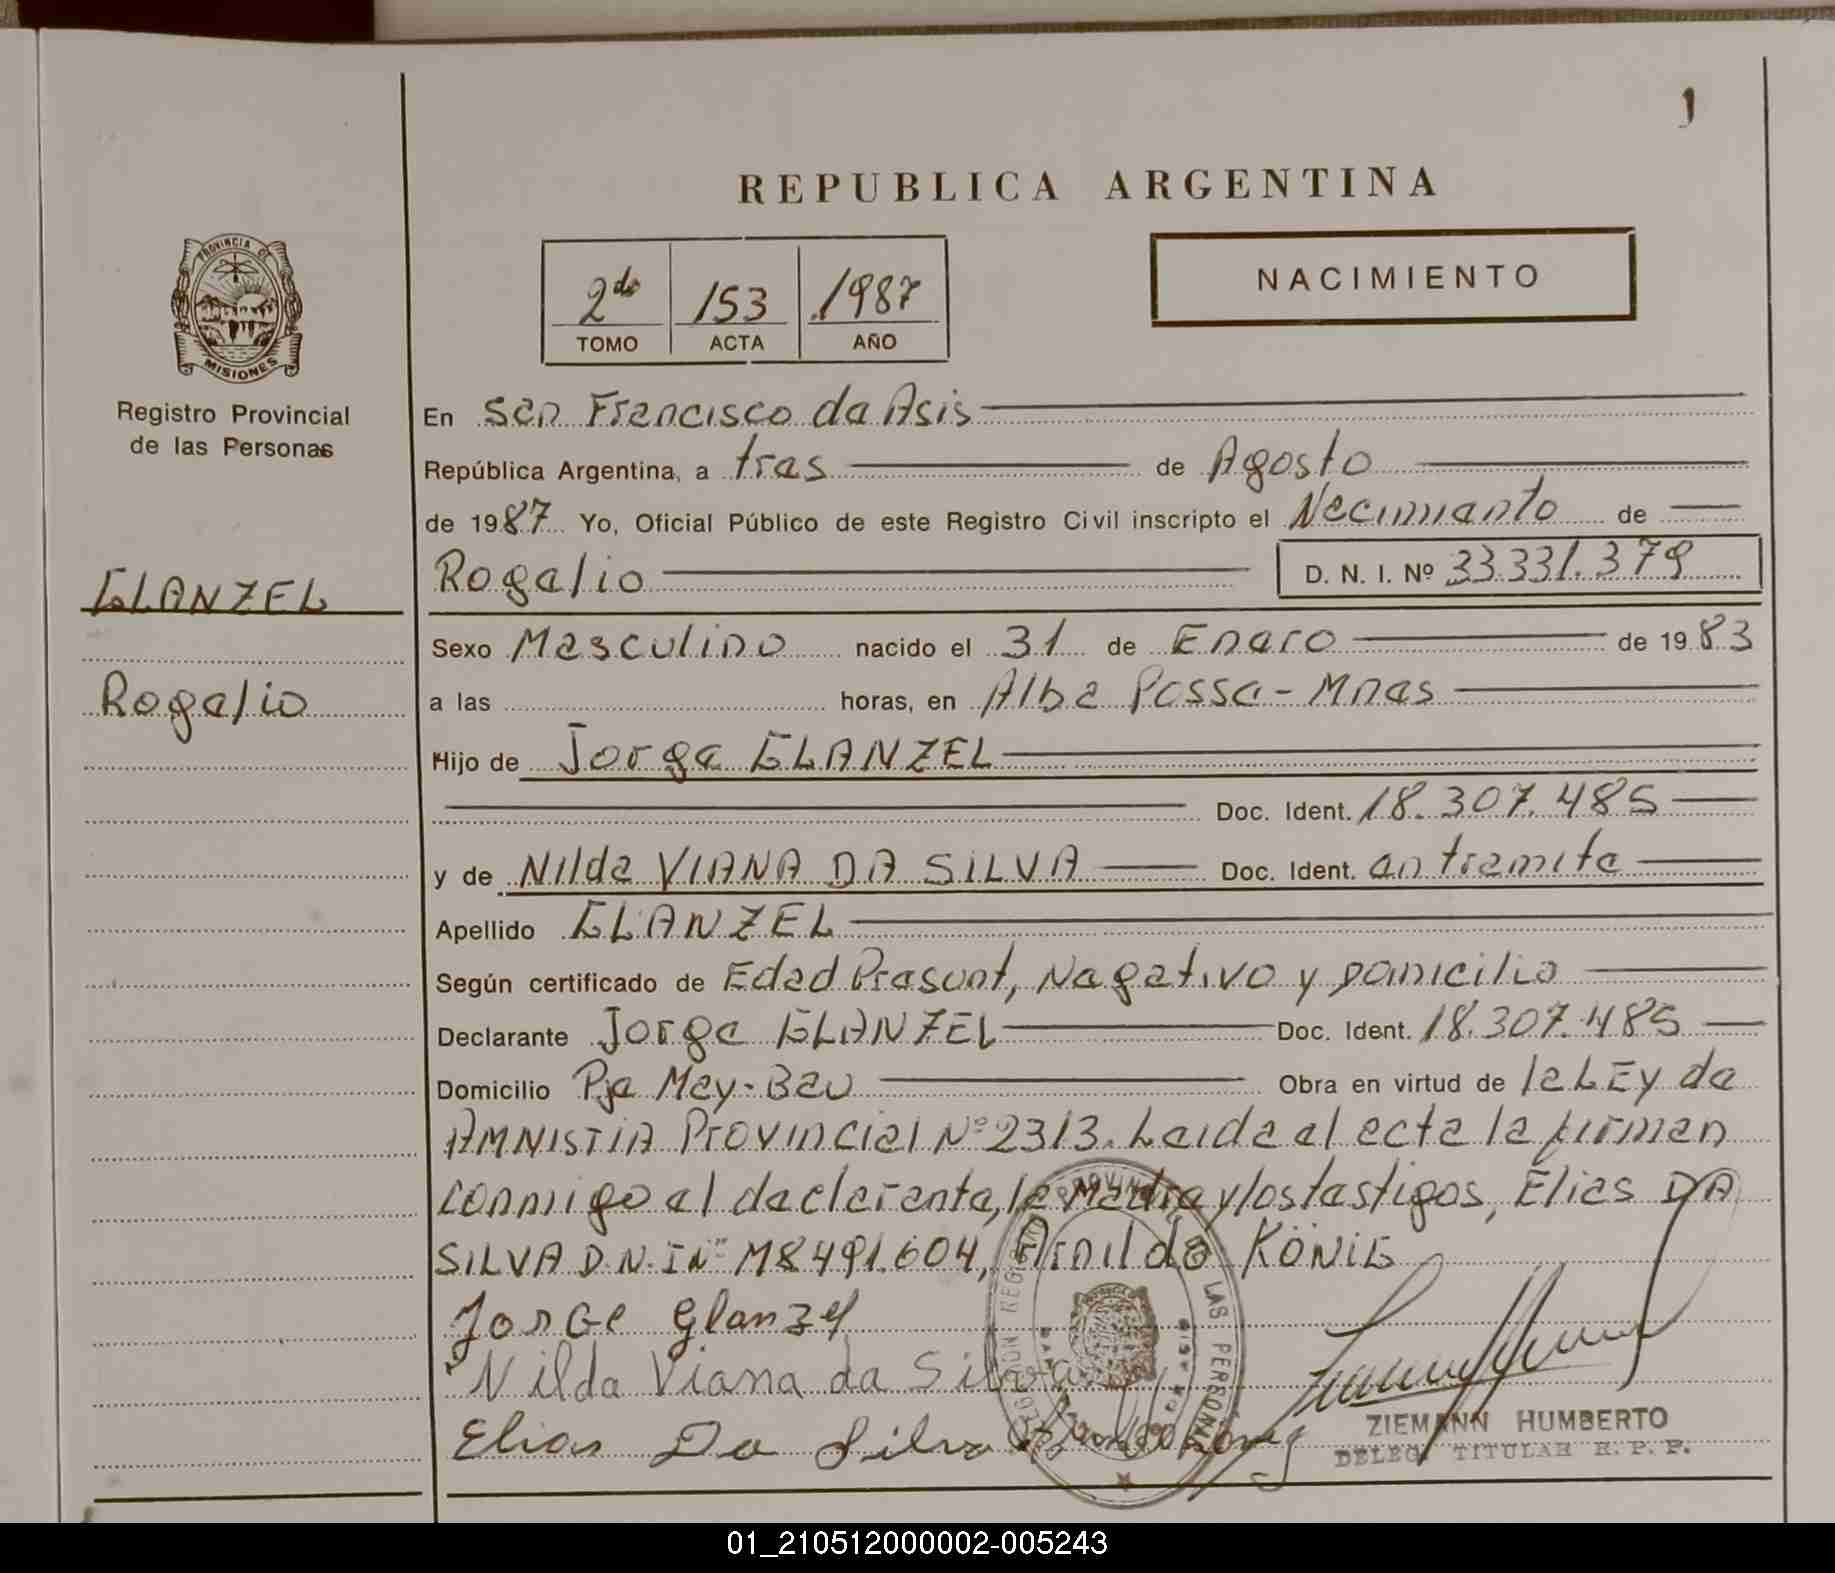 1
REPUBLICA ARGENTINA
PROVINCIA DE
MISIONES
Registro Provincial
de las Personas
2do 153 1987
TOMO ACTA AÑO
NACIMIENTO
En San Francisco de Asis
República Argentina, a tres de Agosto
de 1987 Yo, Oficial Público de este Registro Civil inscripto el Nacimiento de
Rogelio D. N. I. Nº 33.331.379
GLANZEL
Rogelio
Sexo Masculino nacido el 31 de Enero de 1983
a las horas, en Alba Posse - Mnes
Hijo de Jorge GLANZEL
Doc. Ident. 18.307.485
y de Nilda VIANA DA SILVA Doc. Ident. en tramite
Apellido GLANZEL
Según certificado de Edad Presunt, Negativo y Domicilio
Declarante Jorge GLANZEL Doc. Ident. 18.307.485
Domicilio Pje May-Bau Obra en virtud de la LEy de
AMNISTIA Provincial Nº 2313. Leida el acta la firman
conmigo el declarante, la Madre y los testigos, Elias DA
SILVA D.N.I Nº M8491.604, Arnildo KÖNIG
Jorge Glanzel
Nilda Viana da Silva
Elias Da Silva
ZIEMANN HUMBERTO
DELEG. TITULAR R. P. P.
01_210512000002-005243